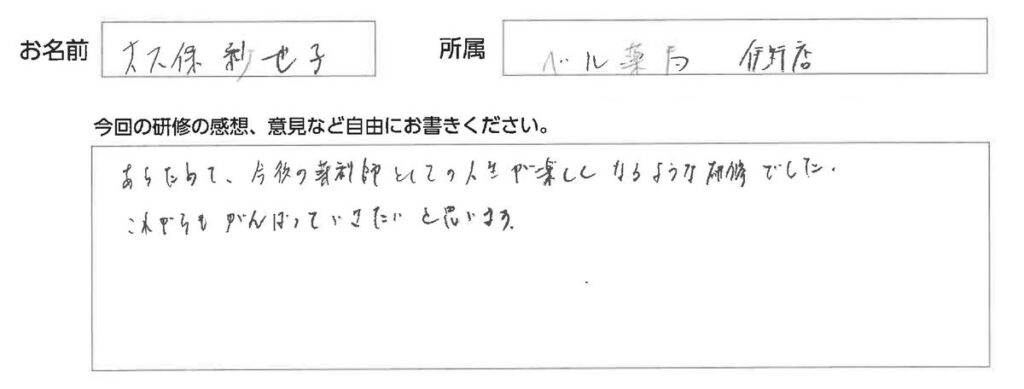 お名前 大久保 紗世子
所属 ベル薬局 店
今回の研修の感想、意見など自由にお書きください。
あらためて、今後の薬剤師としての人生が楽しくなるような研修でした.
これからもがんばっていきたいと思います.